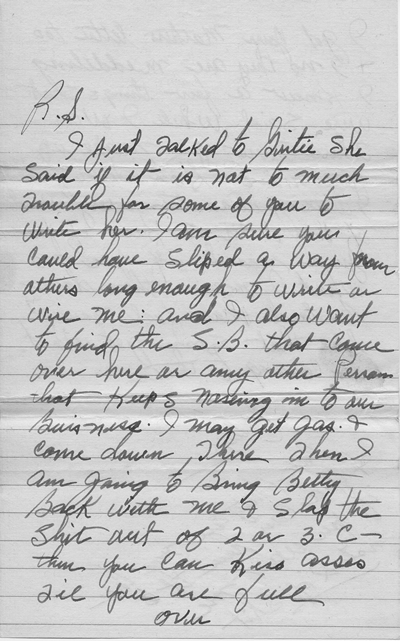 P.S.
I Just talked to Girtie She
Said if it is not to much
trouble for some of you to
write her. I am sure you
Could have Sliped a way from
others long enough to write or
wire me: and I also Want
to find the S.B. that Come
over here or any other Person
that Keeps nosing in to our
Buisness. I may get gas &
come down there then I
am going to Bring Betty
Back with me & Slap the
Shit out of 2 or 3. C-
then you can Kiss asses
til you are full
over